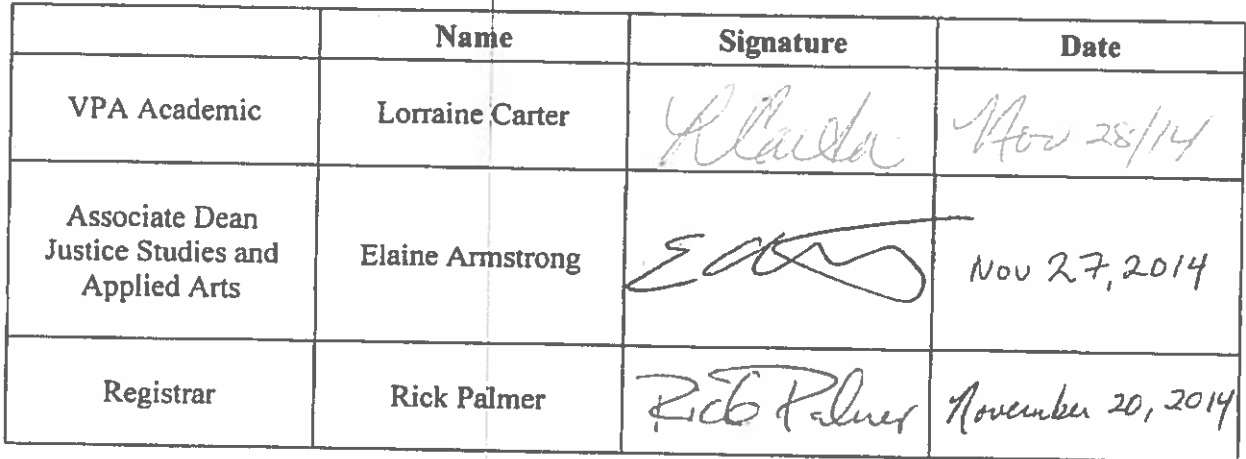 Name Signature Date
VPA Academic Lorraine Carter LCarter Nov 28/14
Associate Dean
Justice Studies and
Applied Arts
Elaine Armstrong Nov 27, 2014
Registrar Rick Palmer Rick Palmer November 20, 2014